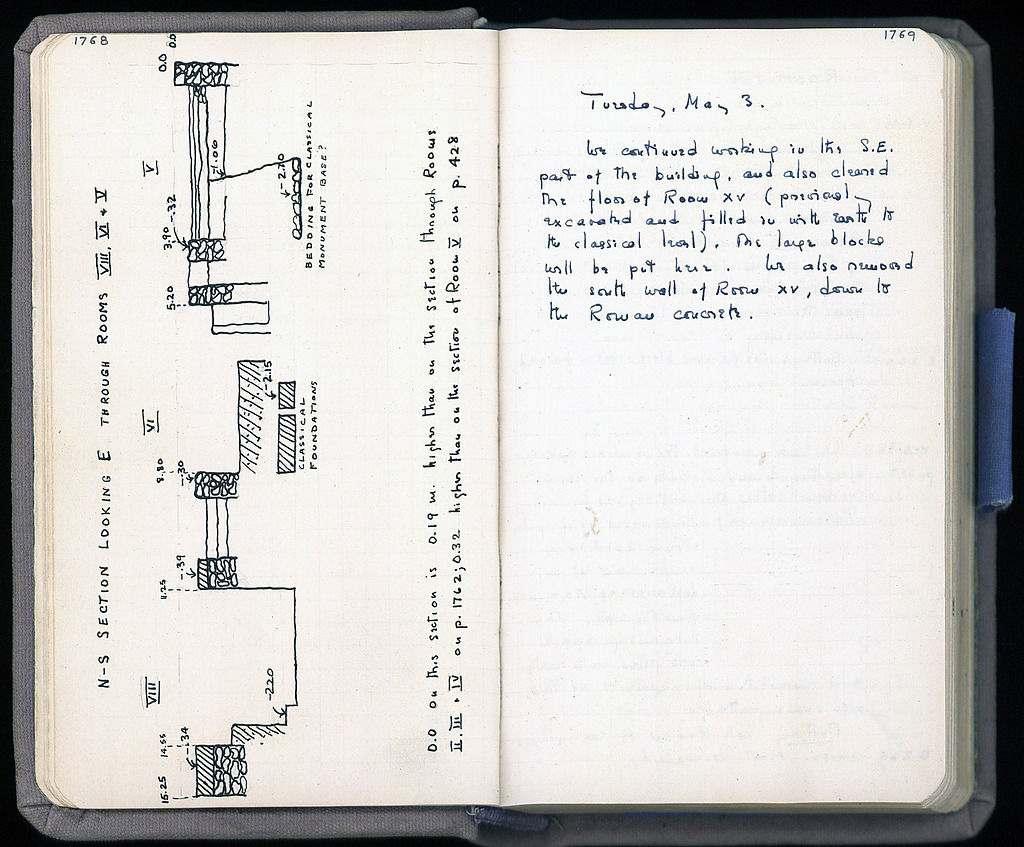 1768
N-S SECTION LOOKING E THROUGH ROOMS VIII, VI + V
VIII
VI
V
15.25
14.55
-.34
-2.20
11.25
-.39
8.80
-.30
-2.15
CLASSICAL
FOUNDATIONS
5.20
3.90
-.32
-1.06
-2.20
BEDDING FOR CLASSICAL
MONUMENT BASE?
0.0
0.0
0.0 on this section is 0.19 m. higher than on the section through Rooms
II, III + IV on p. 1762; 0.32 higher than on the section of Room V on p. 428
1769
Tuesday, May 3.
We continued working in the S.E.
part of the building, and also cleared
the floor of Room XV (previously
excavated and filled in with earth to
the classical level). The large blocks
will be put here. We also removed
the south wall of Room XV, down to
the Roman concrete.